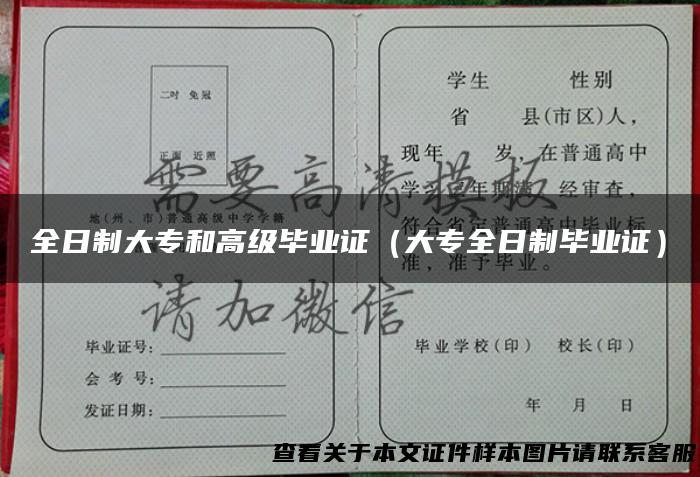 二吋 免冠
正面 近照
地(州、市)普通高级中学学籍
毕业证号:
会 考 号:
发证日期:
学生 性别
省 县(市区)人,
现年 岁,在普通高中
学习 年期满,经审查,
符合省定普通高中毕业标
准,准予毕业。
毕业学校(印) 校长(印)
年 月 日
需要高清模板
请加微信
全日制大专和高级毕业证（大专全日制毕业证）
查看关于本文证件样本图片请联系客服